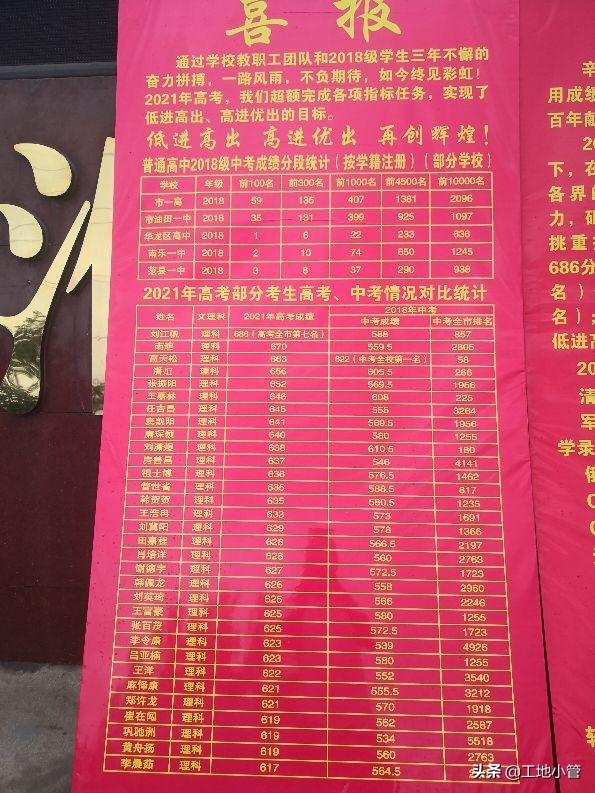 喜报
通过学校教职工团队和2018级学生三年不懈的
奋力拼搏，一路风雨，不负期待，如今终见彩虹！
2021年高考，我们超额完成各项指标任务，实现了
低进高出、高进优出的目标。
低进高出 高进优出 再创辉煌！
普通高中2018级中考成绩分段统计（按学籍注册）（部分学校）
学校 年级 前100名 前300名 前1000名 前4500名 前10000名
市一高 2018 59 135 407 1381 2096
市油田一中 2018 35 131 399 925 1097
华龙区高中 2018 1 6 22 233 636
南乐一中 2018 2 10 74 650 1245
范县一中 2018 3 8 37 290 938
2021年高考部分考生高考、中考情况对比统计
姓名 文理科 2021年高考成绩 2018年中考
中考成绩 中考全市排名
刘江帆 理科 686（高考全市第七名） 588 857
南迪 理科 670 559.5 2805
高天松 理科 663 622（中考全校第一名） 58
理科 656 605.5 266
张振阳 理科 652 569.5 1956
王嘉林 理科 646 608 225
任吉昌 理科 645 555 3264
理科 641 569.5 1956
理科 640 580 1255
刘潇煜 理科 638 610.5 180
房善昌 理科 637 546 4141
祖士博 理科 636 576.5 1462
管世省 理科 635 588.5 817
韩贺贺 理科 635 580.5 1235
王浩冉 理科 633 573 1691
刘冀阳 理科 629 578 1366
田嘉程 理科 628 566.5 2197
肖培洋 理科 628 560 2763
谢德宇 理科 627 572.5 1723
韩佩龙 理科 626 558 2960
刘英琦 理科 625 566 2246
王富豪 理科 625 580 1255
张百茂 理科 625 572.5 1723
李令康 理科 623 539 4926
吕亚楠 理科 623 580 1255
王洋 理科 622 552 3540
麻怿康 理科 621 555.5 3212
郑许龙 理科 621 570 1918
崔在闯 理科 619 562 2587
巩驰洲 理科 619 534 5518
黄舟扬 理科 619 560 2763
李晨茹 理科 617 564.5
用成绩
百年献
下，在
各界的
力，砥
挑重
686分
名）
名）
低进高
学录
头条 @工地小管